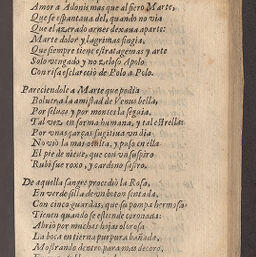 Amor a Adonis mas que al fiero Marte,
Que se espantaua del, quando no via
Que el azerado arnes dexaua aparte:
Marte dolor y lagrimas fingia,
Que siempre tiene estratagemas y arte
Solo vengado y no zeloso Apolo
Con risa esclarecio de Polo a Polo.
Pareciendole a Marte que podia
Boluer a la amistad de Venus bella,
Por selua y por montes la seguia,
Tal vez en forma humana, y tal estrella:
Por vnas çarças fugitiua vn dia
No vio la mas oculta, y puso en ella
El pie de nieue, que con vn suspiro
Rubi fue roxo, y cardeno safiro.
De aquella sangre procedio la Rosa,
En verde silla de vn boton sentada,
Con cinco guardas, que su pompa hermosa
Tienen quando se estiende coronada:
Abrio por muchas hojas olorosa
La boca en tierna purpura bañada,
Mostrando dentro para mas decoro,